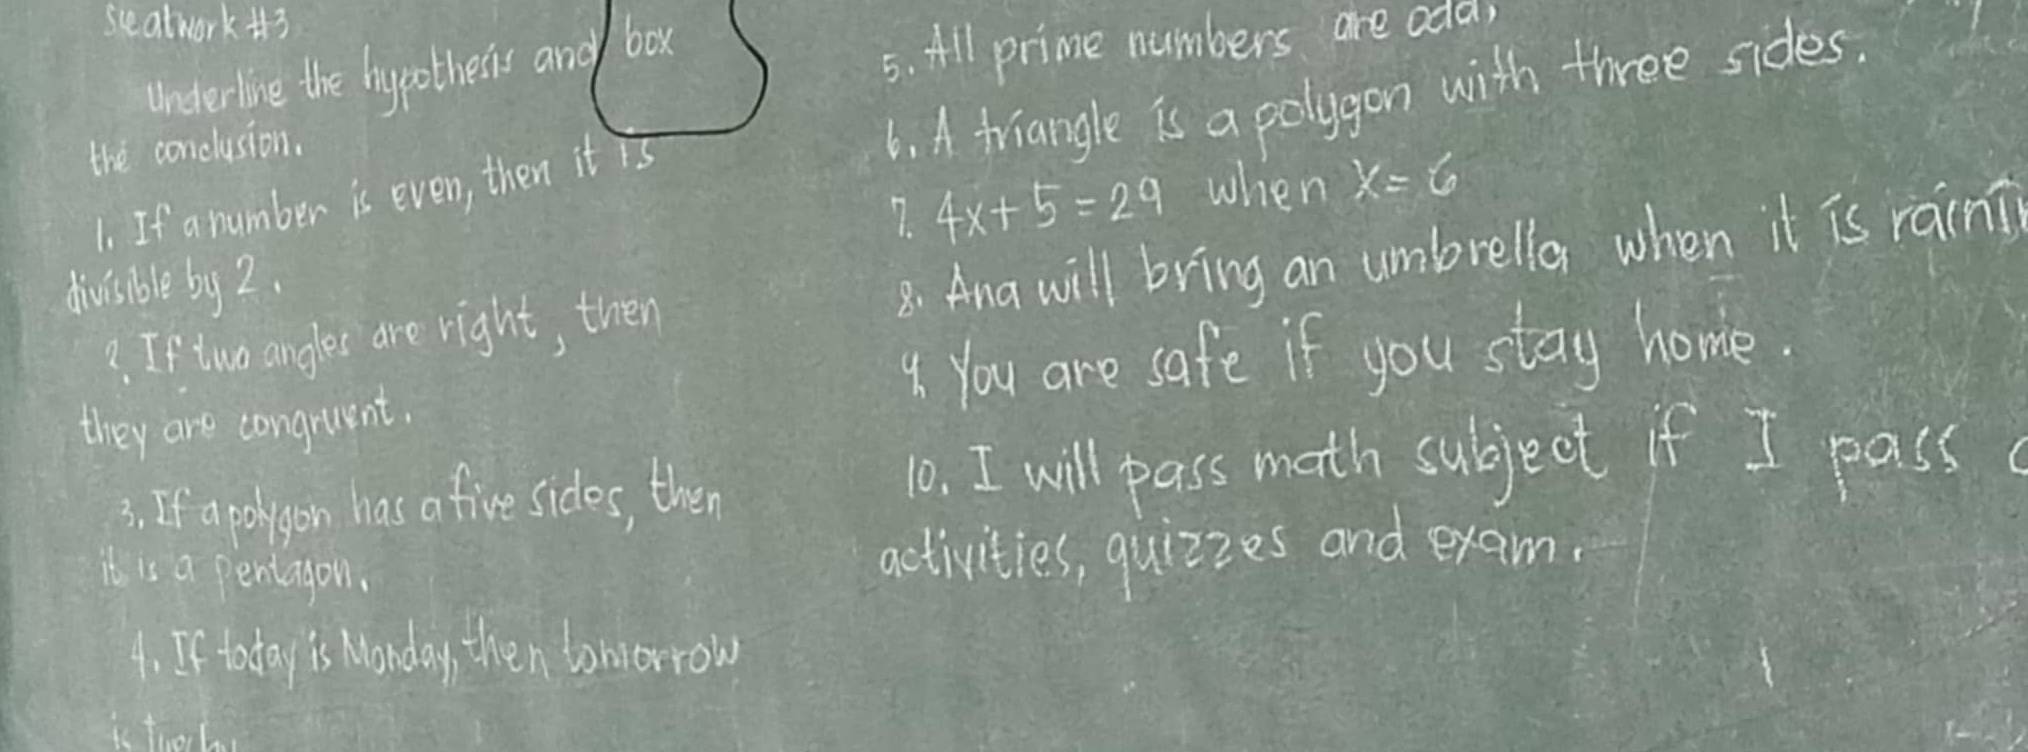 Seatwork #3
Underline the hypothesis and box
the conclusion.
1. If a number is even, then it is
divisible by 2.
2. If two angles are right, then
they are congruent.
3. If a polygon has a five sides, then
it is a pentagon.
4. If today is Monday, then tomorrow
is
5. All prime numbers are odd,
6. A triangle is a polygon with three sides.
7. 4x+5=29 when x=6
8. Ana will bring an umbrella when it is
9. You are safe if you stay home.
10. I will pass math subject if I pass
activities, quizzes and exam.